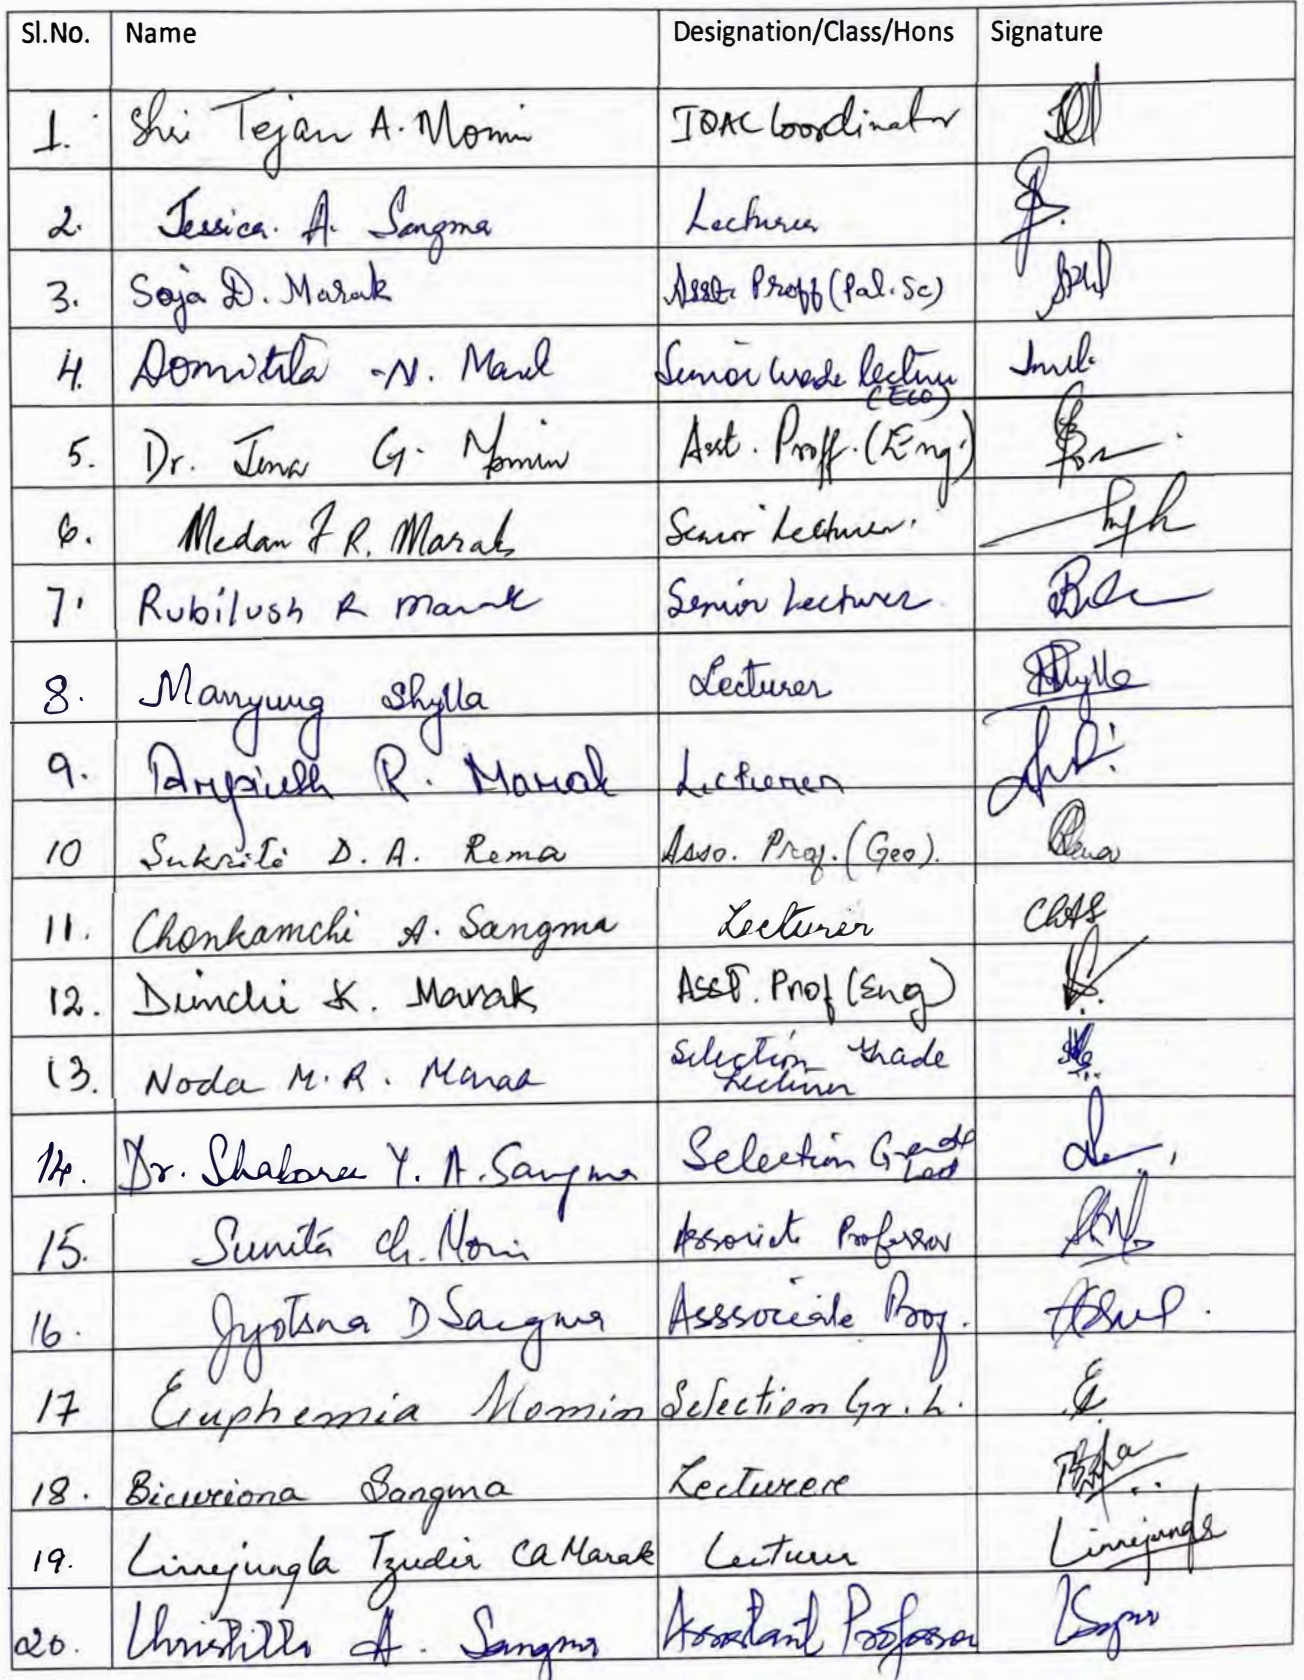 Sl.No. Name Designation/Class/Hons Signature
1. Shri Tejan A. Momin IQAC Coordinator
2. Jessica A. Sangma Lecturer
3. Soja D. Marak Asst. Proff (Pol. Sc)
4. Domitila N. Marak Senior Grade lecturer
(ECO)
5. Dr. Jena G. Momin Asst. Proff. (Eng.)
6. Medan F R. Marak Senior Lecturer.
7. Rubilush R Marak Senior Lecturer
8. Manyung Shylla Lecturer Shylla
9. R. Marak Lecturer
10 Sukriti D. A. Rema Asso. Prof. (Geo). Rema
11. Chonkamchi A. Sangma Lecturer ChAS
12. Dimchi K. Marak Asst. Prof (Eng)
13. Noda M. R. Marak Selection Grade
Lecturer
14. Dr. Y. A. Sangma Selection Grade
Lect
15. Sunita Ch. Momin Associate Professor
16. Jyotsna D Sangma Asssociate Prof.
17 Euphemia Momin Selection Gr. L. E
18. Sangma Lecturer
19. Limejungla Tzudir CA Marak Lecturer Limejungla
20. Christilla A. Sangma Assistant Professor